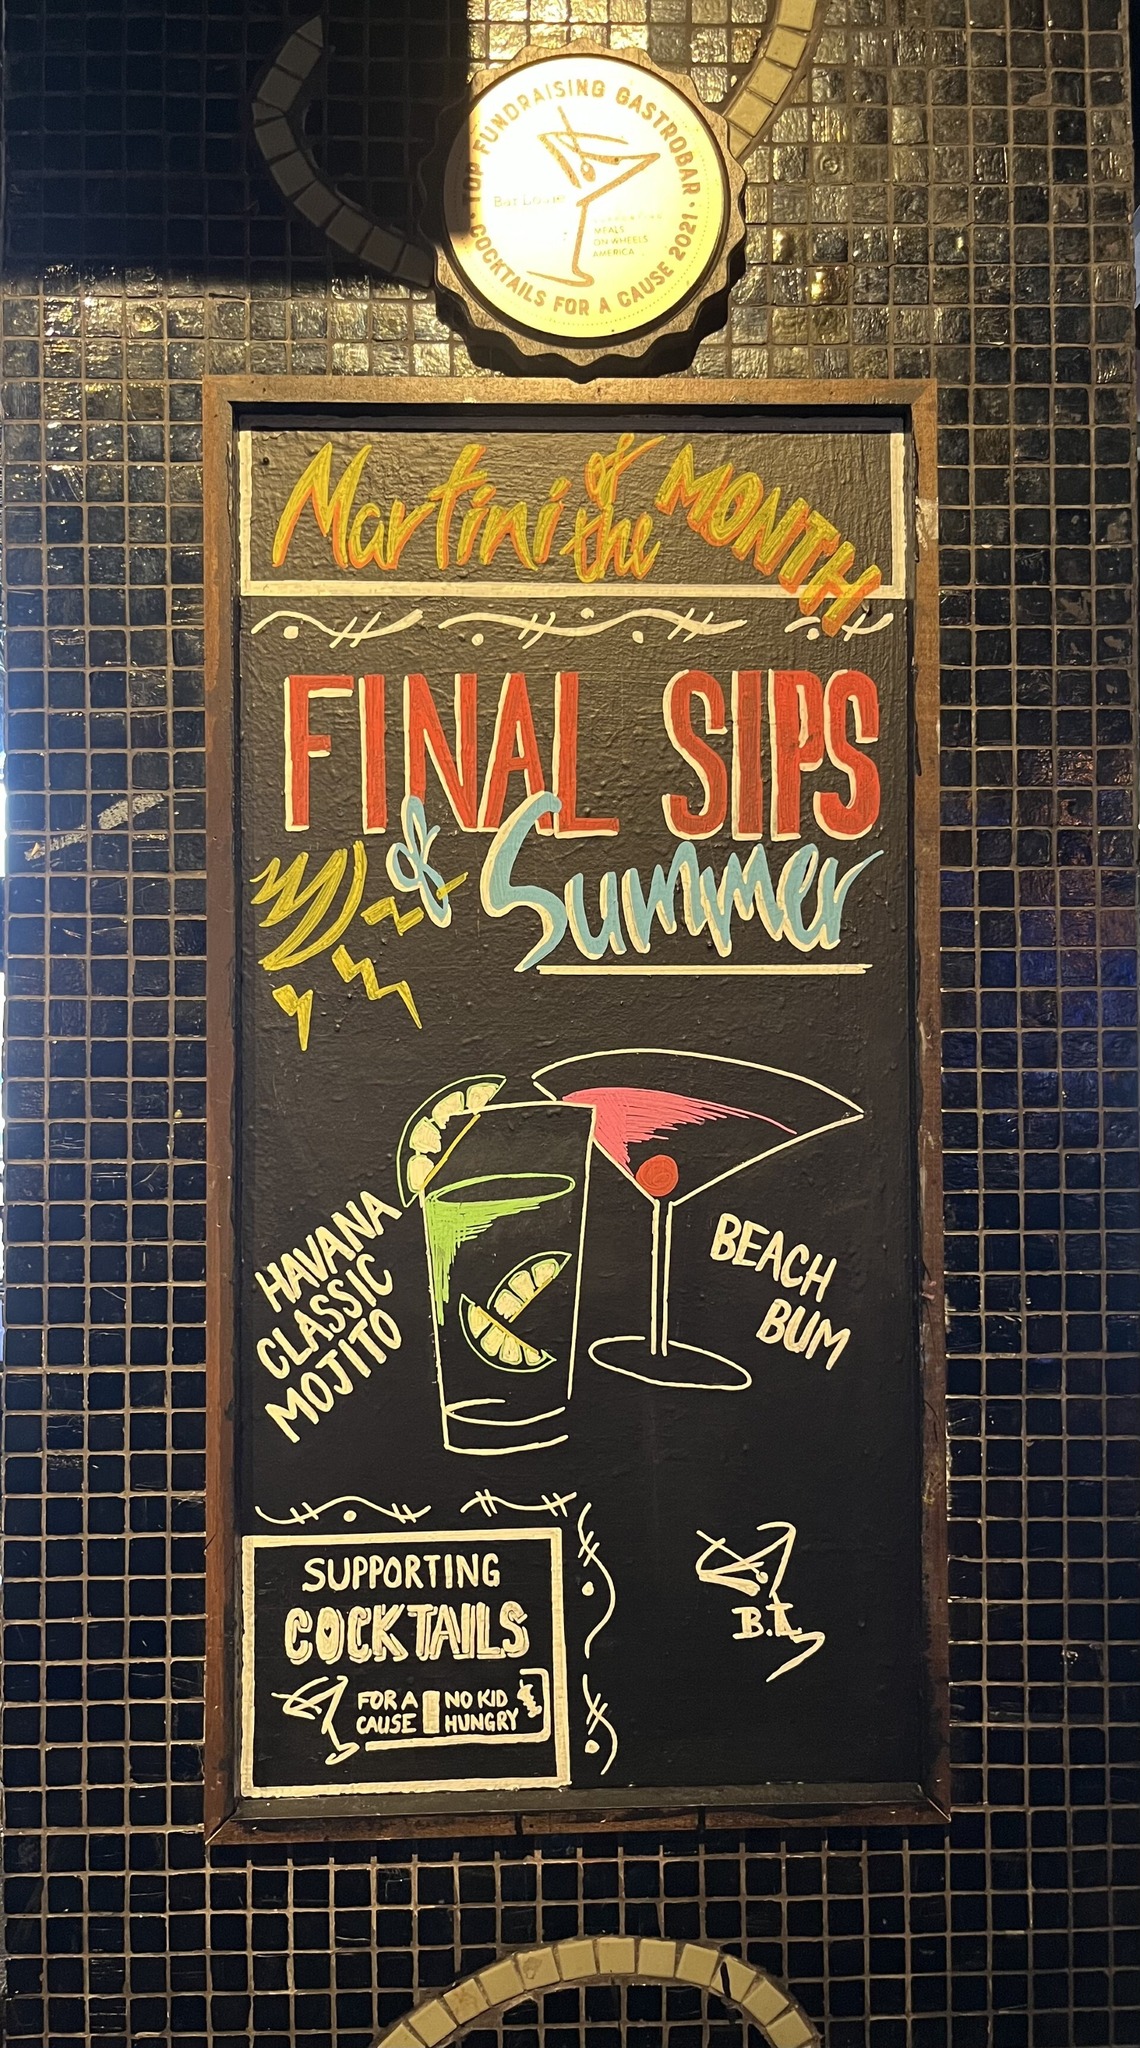 TOP FUNDRAISING GASTROBAR
Bar Louie
SUPPORTING
MEALS
ON WHEELS
AMERICA
COCKTAILS FOR A CAUSE 2021
Martini of the MONTH
FINAL SIPS
of Summer
HAVANA
CLASSIC
MOJITO
BEACH
BUM
SUPPORTING
COCKTAILS
FOR A
CAUSE
NO KID
HUNGRY